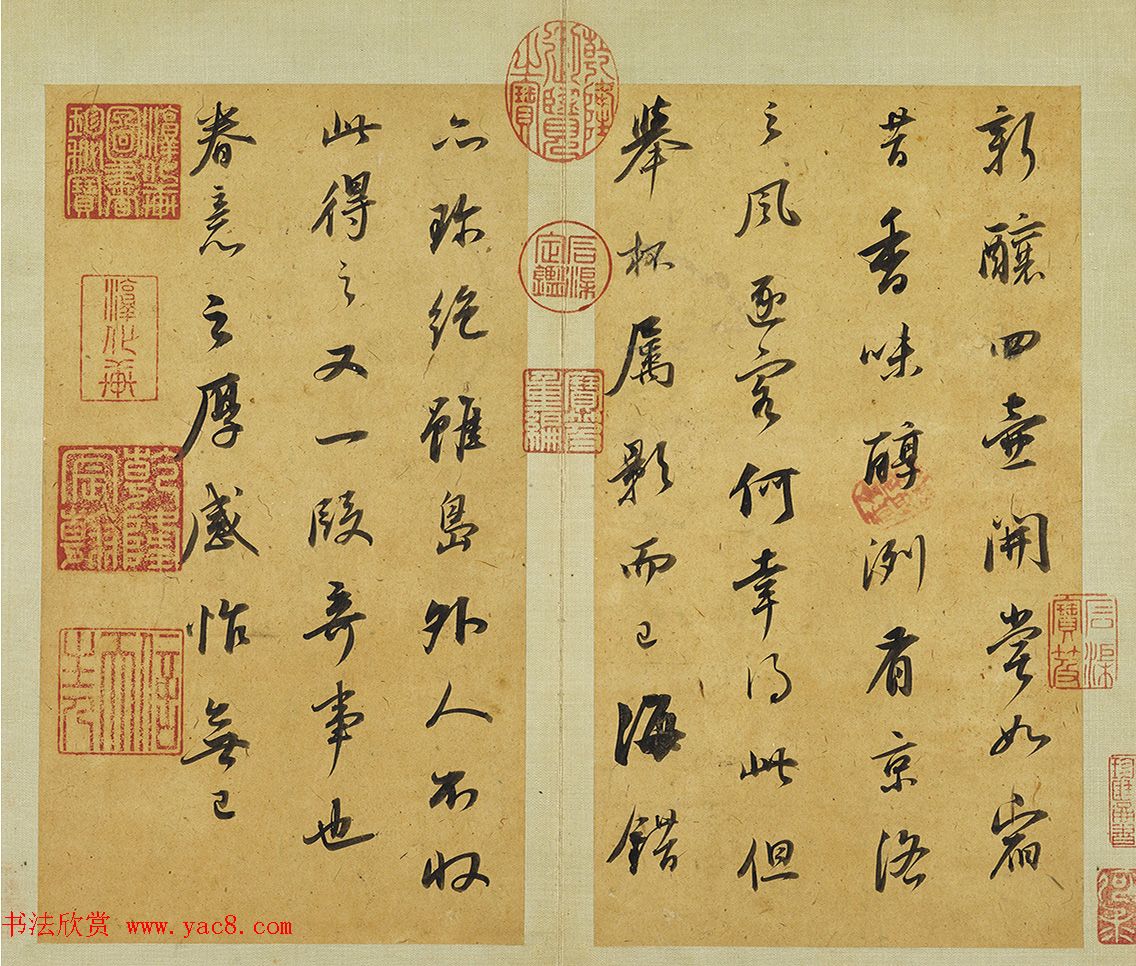 新釀四壺開嘗如宿
昔香味醇冽有京洛
之風逐客何幸得此但
舉杯屬影而已海錯
亦珍絕雖島外人不收
此得之又一段奇事也
眷意之厚感怍無已
乾隆御覽之寶
石渠定鑑
寶笈重編
石渠寶笈
淳化軒圖書珍秘寶
淳化軒
乾隆宸翰
信天主人
书法欣赏 www.yac8.com